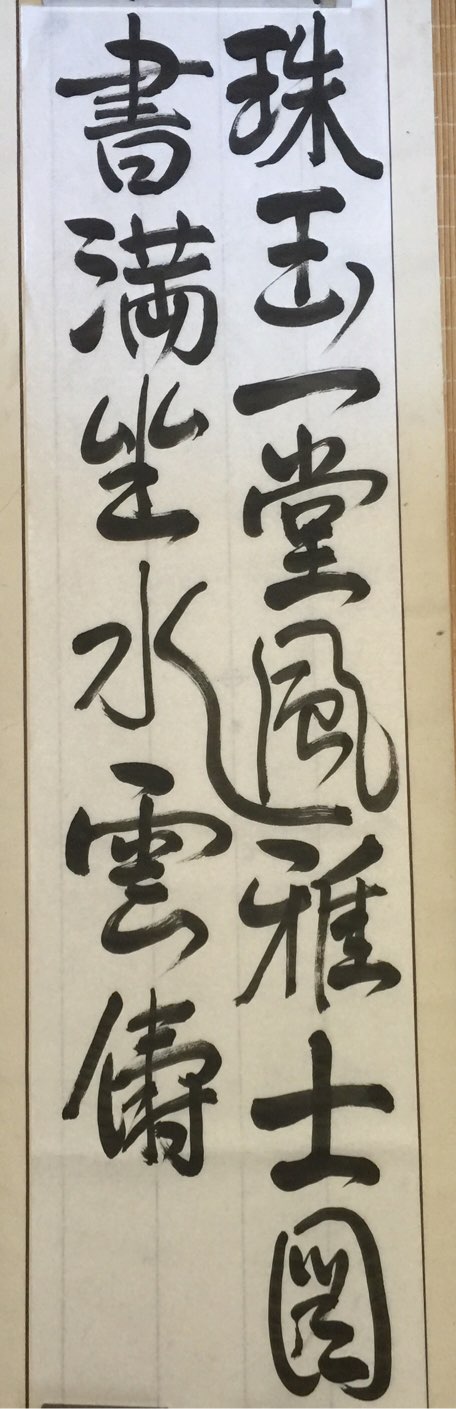 珠玉一堂風雅士圖
書満坐水雲儔